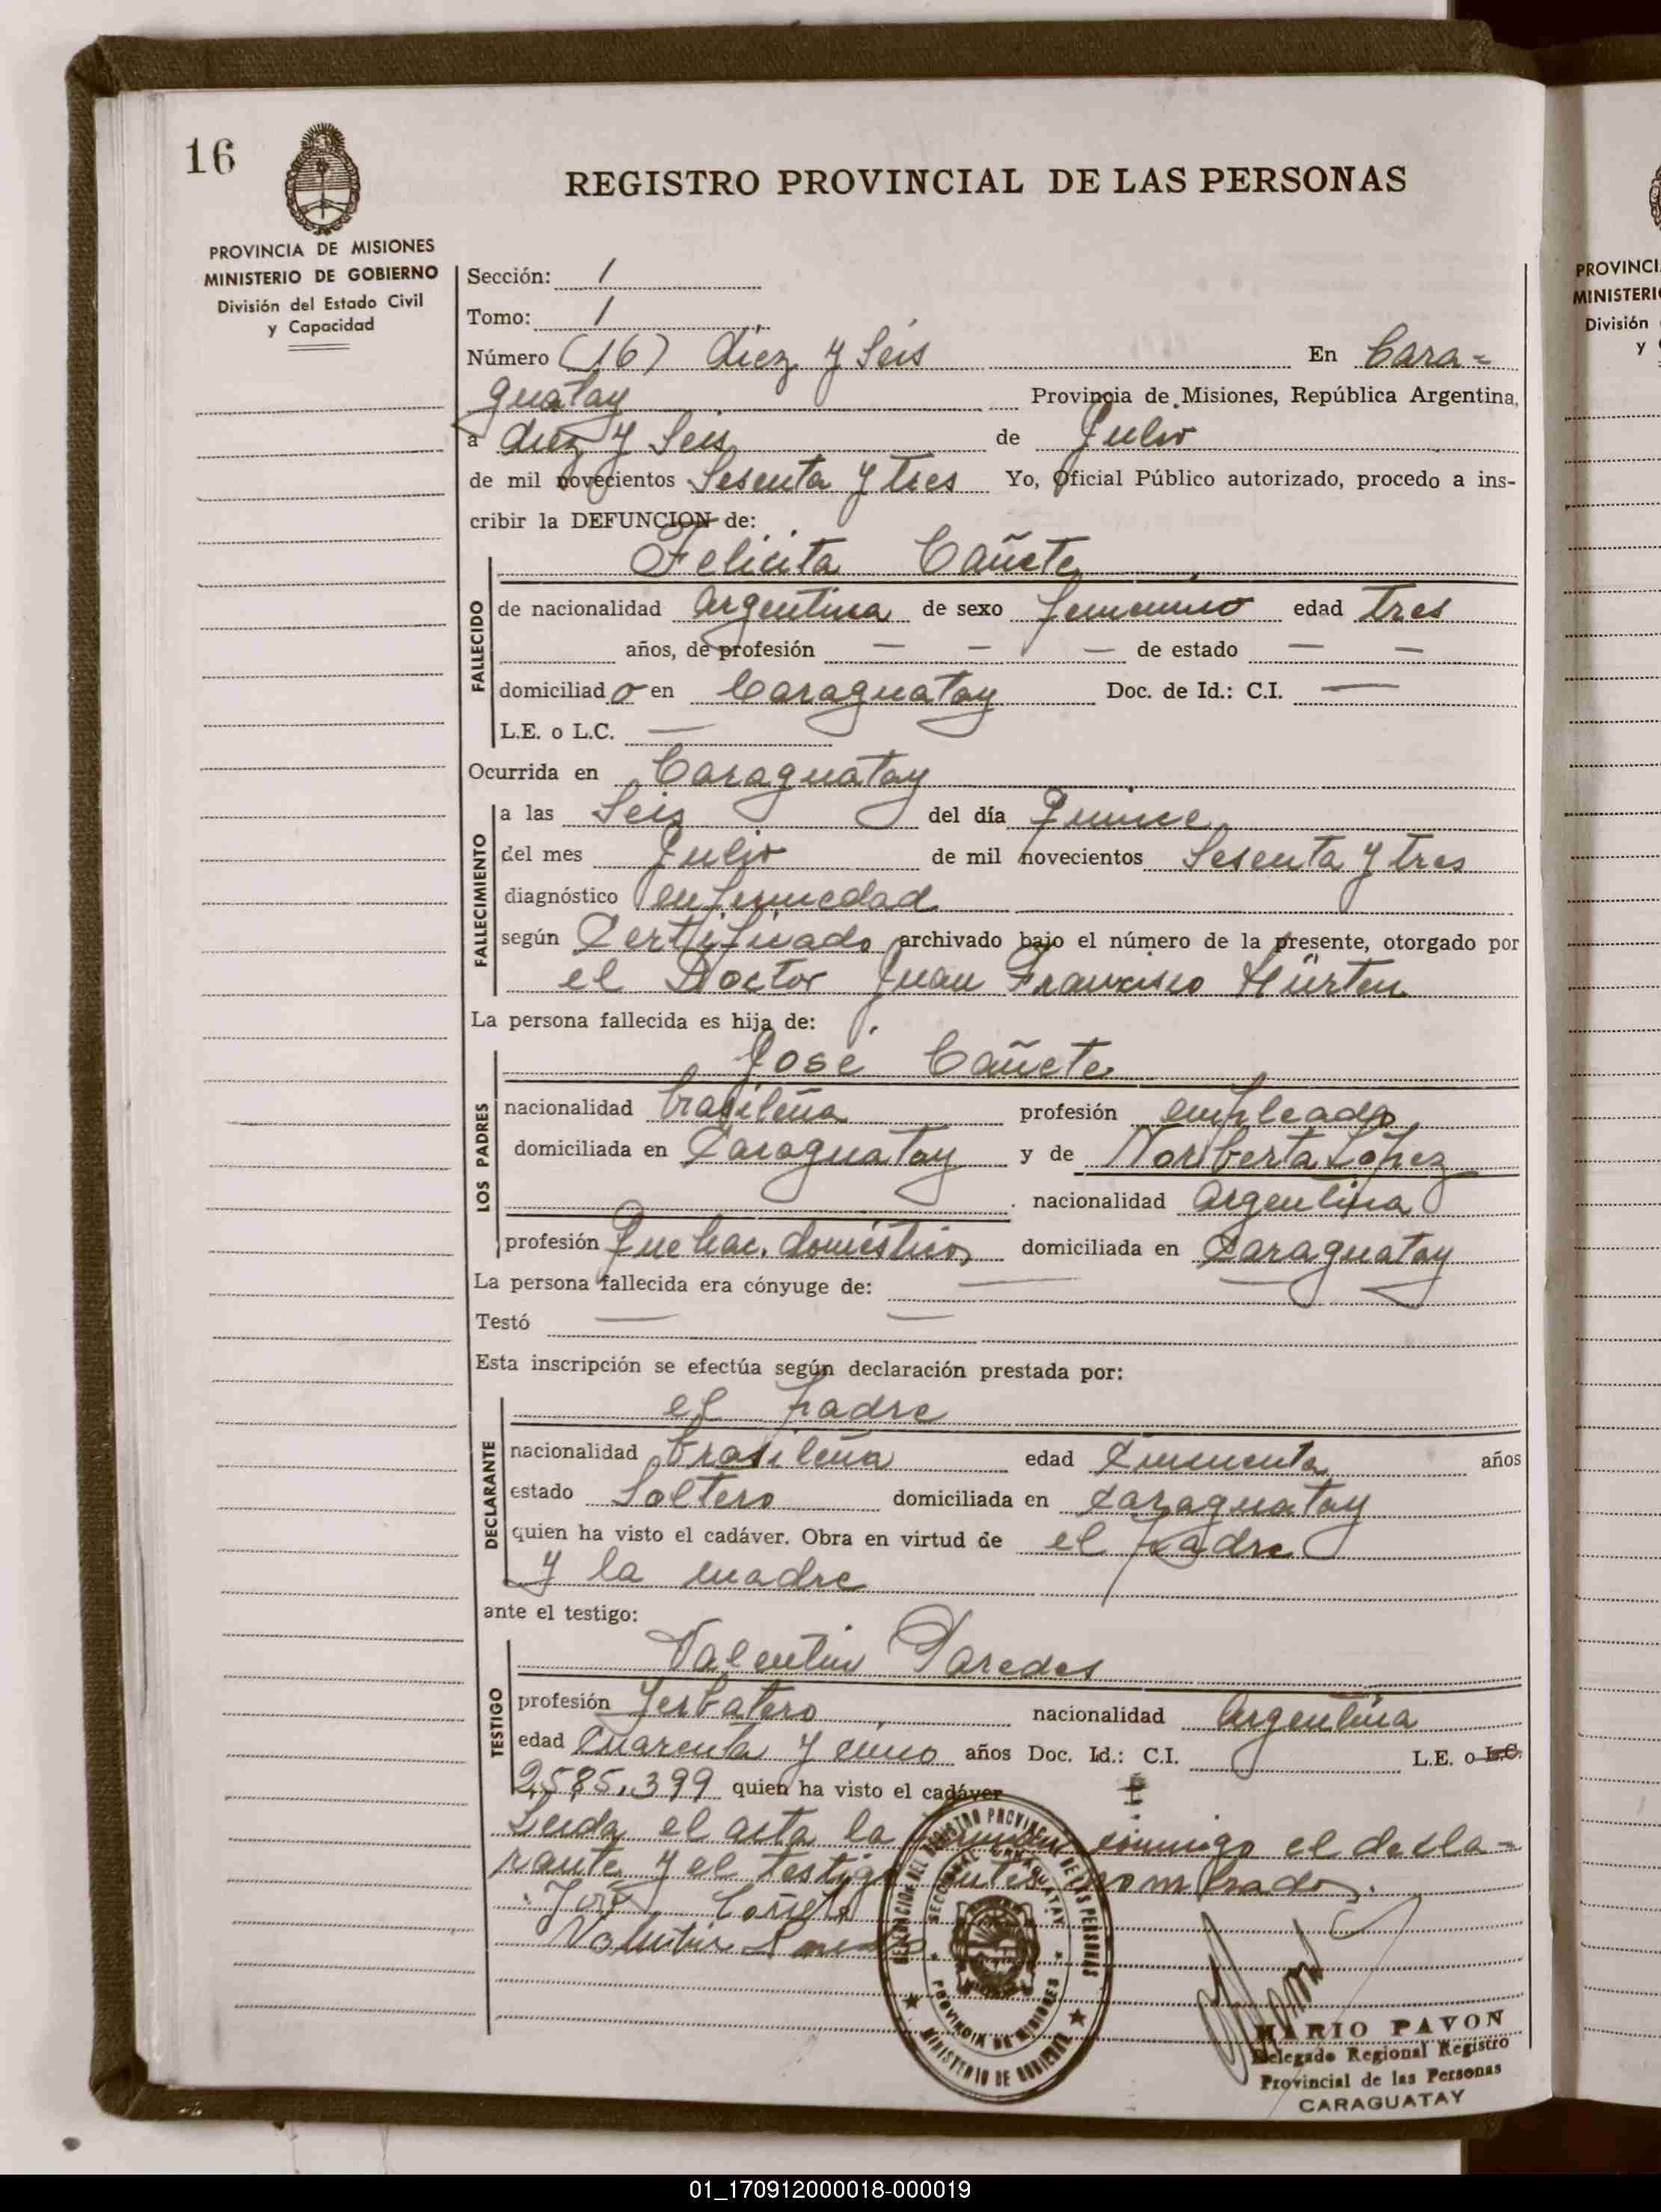 16
REGISTRO PROVINCIAL DE LAS PERSONAS
PROVINCIA DE MISIONES
MINISTERIO DE GOBIERNO
División del Estado Civil
y Capacidad
Sección: 1
Tomo: 1
Número (16) diez y Seis En Cara-
guatay Provincia de Misiones, República Argentina,
a diez y Seis de Julio
de mil novecientos Sesenta y tres Yo, Oficial Público autorizado, procedo a ins-
cribir la DEFUNCION de:
Felicita Cañete
FALLECIDO
de nacionalidad argentina de sexo femenino edad tres
años, de profesión — — — de estado — —
domiciliado en Caraguatay Doc. de Id.: C.I. —
L.E. o L.C. —
Ocurrida en Caraguatay
FALLECIMIENTO
a las Seis del día Quince
del mes Julio de mil novecientos Sesenta y tres
diagnóstico enfermedad
según Certificado archivado bajo el número de la presente, otorgado por
el Doctor Juan Francisco Hürten
La persona fallecida es hija de:
José Cañete
LOS PADRES
nacionalidad brasileña profesión empleado
domiciliada en Caraguatay y de Noriberta López
nacionalidad argentina
profesión Quehac. domésticos domiciliada en Caraguatay
La persona fallecida era cónyuge de: —
Testó — —
Esta inscripción se efectúa según declaración prestada por:
el padre
DECLARANTE
nacionalidad brasileña edad Cincuenta años
estado Soltero domiciliada en Caraguatay
quien ha visto el cadáver. Obra en virtud de el padre
y la madre
ante el testigo:
Valentin Paredes
TESTIGO
profesión Yerbatero nacionalidad Argentina
edad Cuarenta y cinco años Doc. Id.: C.I. L.E. o L.C.
2.585.399 quien ha visto el cadáver
Leida el acta la conmigo el decla-
rante y el testigo antes nombrados.
José Cañete
Valentin Paredes
DELEGACION DEL REGISTRO PROVINCIAL DE LAS PERSONAS
SECCIONAL CARAGUATAY
PROVINCIA DE MISIONES
MINISTERIO DE GOBIERNO
MARIO PAVON
Delegado Regional Registro
Provincial de las Personas
CARAGUATAY
PROVINCI
MINISTERI
División
y
01_170912000018-000019